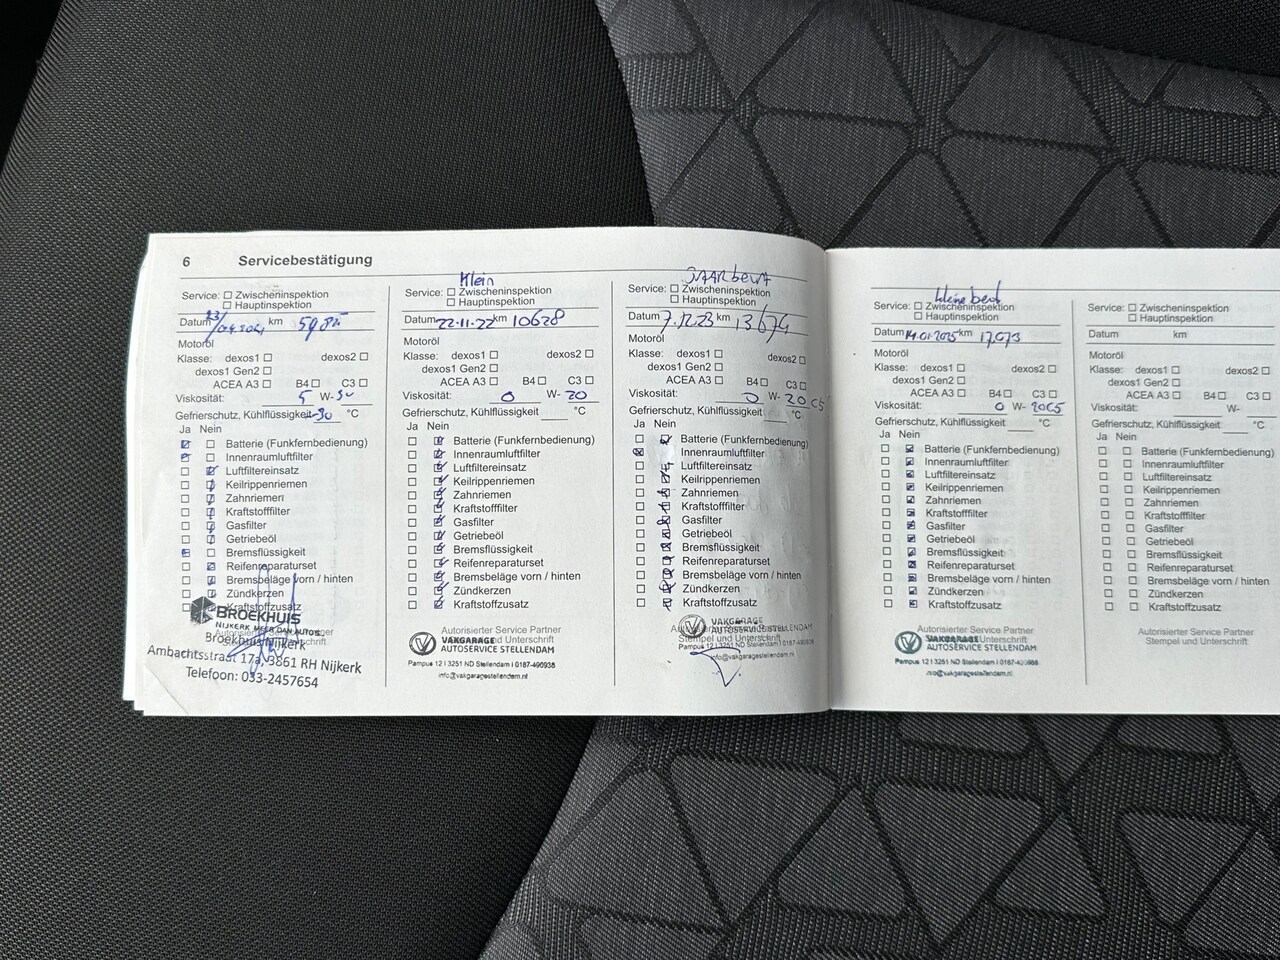 6 Servicebestätigung
Service: Zwischeninspektion
Hauptinspektion
Datum km
Motoröl
Klasse: dexos1 dexos2
dexos1 Gen2
ACEA A3 B4 C3
Viskosität: 5 W- 30
Gefrierschutz, Kühlflüssigkeit -30 °C
Ja Nein
Batterie (Funkfernbedienung)
Innenraumluftfilter
Luftfiltereinsatz
Keilrippenriemen
Zahnriemen
Kraftstofffilter
Gasfilter
Getriebeöl
Bremsflüssigkeit
Reifenreparaturset
Bremsbeläge vorn / hinten
Zündkerzen
Kraftstoffzusatz
BROEKHUIS
NIJKERK MEER DAN AUTO'S
Broekhuis Nijkerk
Ambachtsstraat 17a, 3861 RH Nijkerk
Telefoon: 033-2457654
Klein
Service: Zwischeninspektion
Hauptinspektion
Datum 22-11-22 km 10628
Motoröl
Klasse: dexos1 dexos2
dexos1 Gen2
ACEA A3 B4 C3
Viskosität: 0 W- 20
Gefrierschutz, Kühlflüssigkeit °C
Ja Nein
Batterie (Funkfernbedienung)
Innenraumluftfilter
Luftfiltereinsatz
Keilrippenriemen
Zahnriemen
Kraftstofffilter
Gasfilter
Getriebeöl
Bremsflüssigkeit
Reifenreparaturset
Bremsbeläge vorn / hinten
Zündkerzen
Kraftstoffzusatz
Autorisierter Service Partner
VAKGARAGE und Unterschrift
AUTOSERVICE STELLENDAM
Pampus 12 I 3251 ND Stellendam I 0187-490938
info@vakgaragestellendam.nl
Service: Zwischeninspektion
Hauptinspektion
Datum 7.12.23 km 13674
Motoröl
Klasse: dexos1 dexos2
dexos1 Gen2
ACEA A3 B4 C3
Viskosität: 0 W- 20 C5
Gefrierschutz, Kühlflüssigkeit °C
Ja Nein
Batterie (Funkfernbedienung)
Innenraumluftfilter
Luftfiltereinsatz
Keilrippenriemen
Zahnriemen
Kraftstofffilter
Gasfilter
Getriebeöl
Bremsflüssigkeit
Reifenreparaturset
Bremsbeläge vorn / hinten
Zündkerzen
Kraftstoffzusatz
VAKGARAGE
AUTOSERVICE STELLENDAM
Stempel und Unterschrift
Pampus 12 I 3251 ND Stellendam I 0187-490938
info@vakgaragestellendam.nl
Service: Zwischeninspektion
Hauptinspektion
Datum 14.01.2025 km 17.073
Motoröl
Klasse: dexos1 dexos2
dexos1 Gen2
ACEA A3 B4 C3
Viskosität: 0 W- 20C5
Gefrierschutz, Kühlflüssigkeit °C
Ja Nein
Batterie (Funkfernbedienung)
Innenraumluftfilter
Luftfiltereinsatz
Keilrippenriemen
Zahnriemen
Kraftstofffilter
Gasfilter
Getriebeöl
Bremsflüssigkeit
Reifenreparaturset
Bremsbeläge vorn / hinten
Zündkerzen
Kraftstoffzusatz
Autorisierter Service Partner
VAKGARAGE Unterschrift
AUTOSERVICE STELLENDAM
Pampus 12 I 3251 ND Stellendam I 0187-490938
info@vakgaragestellendam.nl
Service: Zwischeninspektion
Hauptinspektion
Datum km
Motoröl
Klasse: dexos1 dexos2
dexos1 Gen2
ACEA A3 B4 C3
Viskosität: W-
Gefrierschutz, Kühlflüssigkeit °C
Ja Nein
Batterie (Funkfernbedienung)
Innenraumluftfilter
Luftfiltereinsatz
Keilrippenriemen
Zahnriemen
Kraftstofffilter
Gasfilter
Getriebeöl
Bremsflüssigkeit
Reifenreparaturset
Bremsbeläge vorn / hinten
Zündkerzen
Kraftstoffzusatz
Autorisierter Service Partner
Stempel und Unterschrift